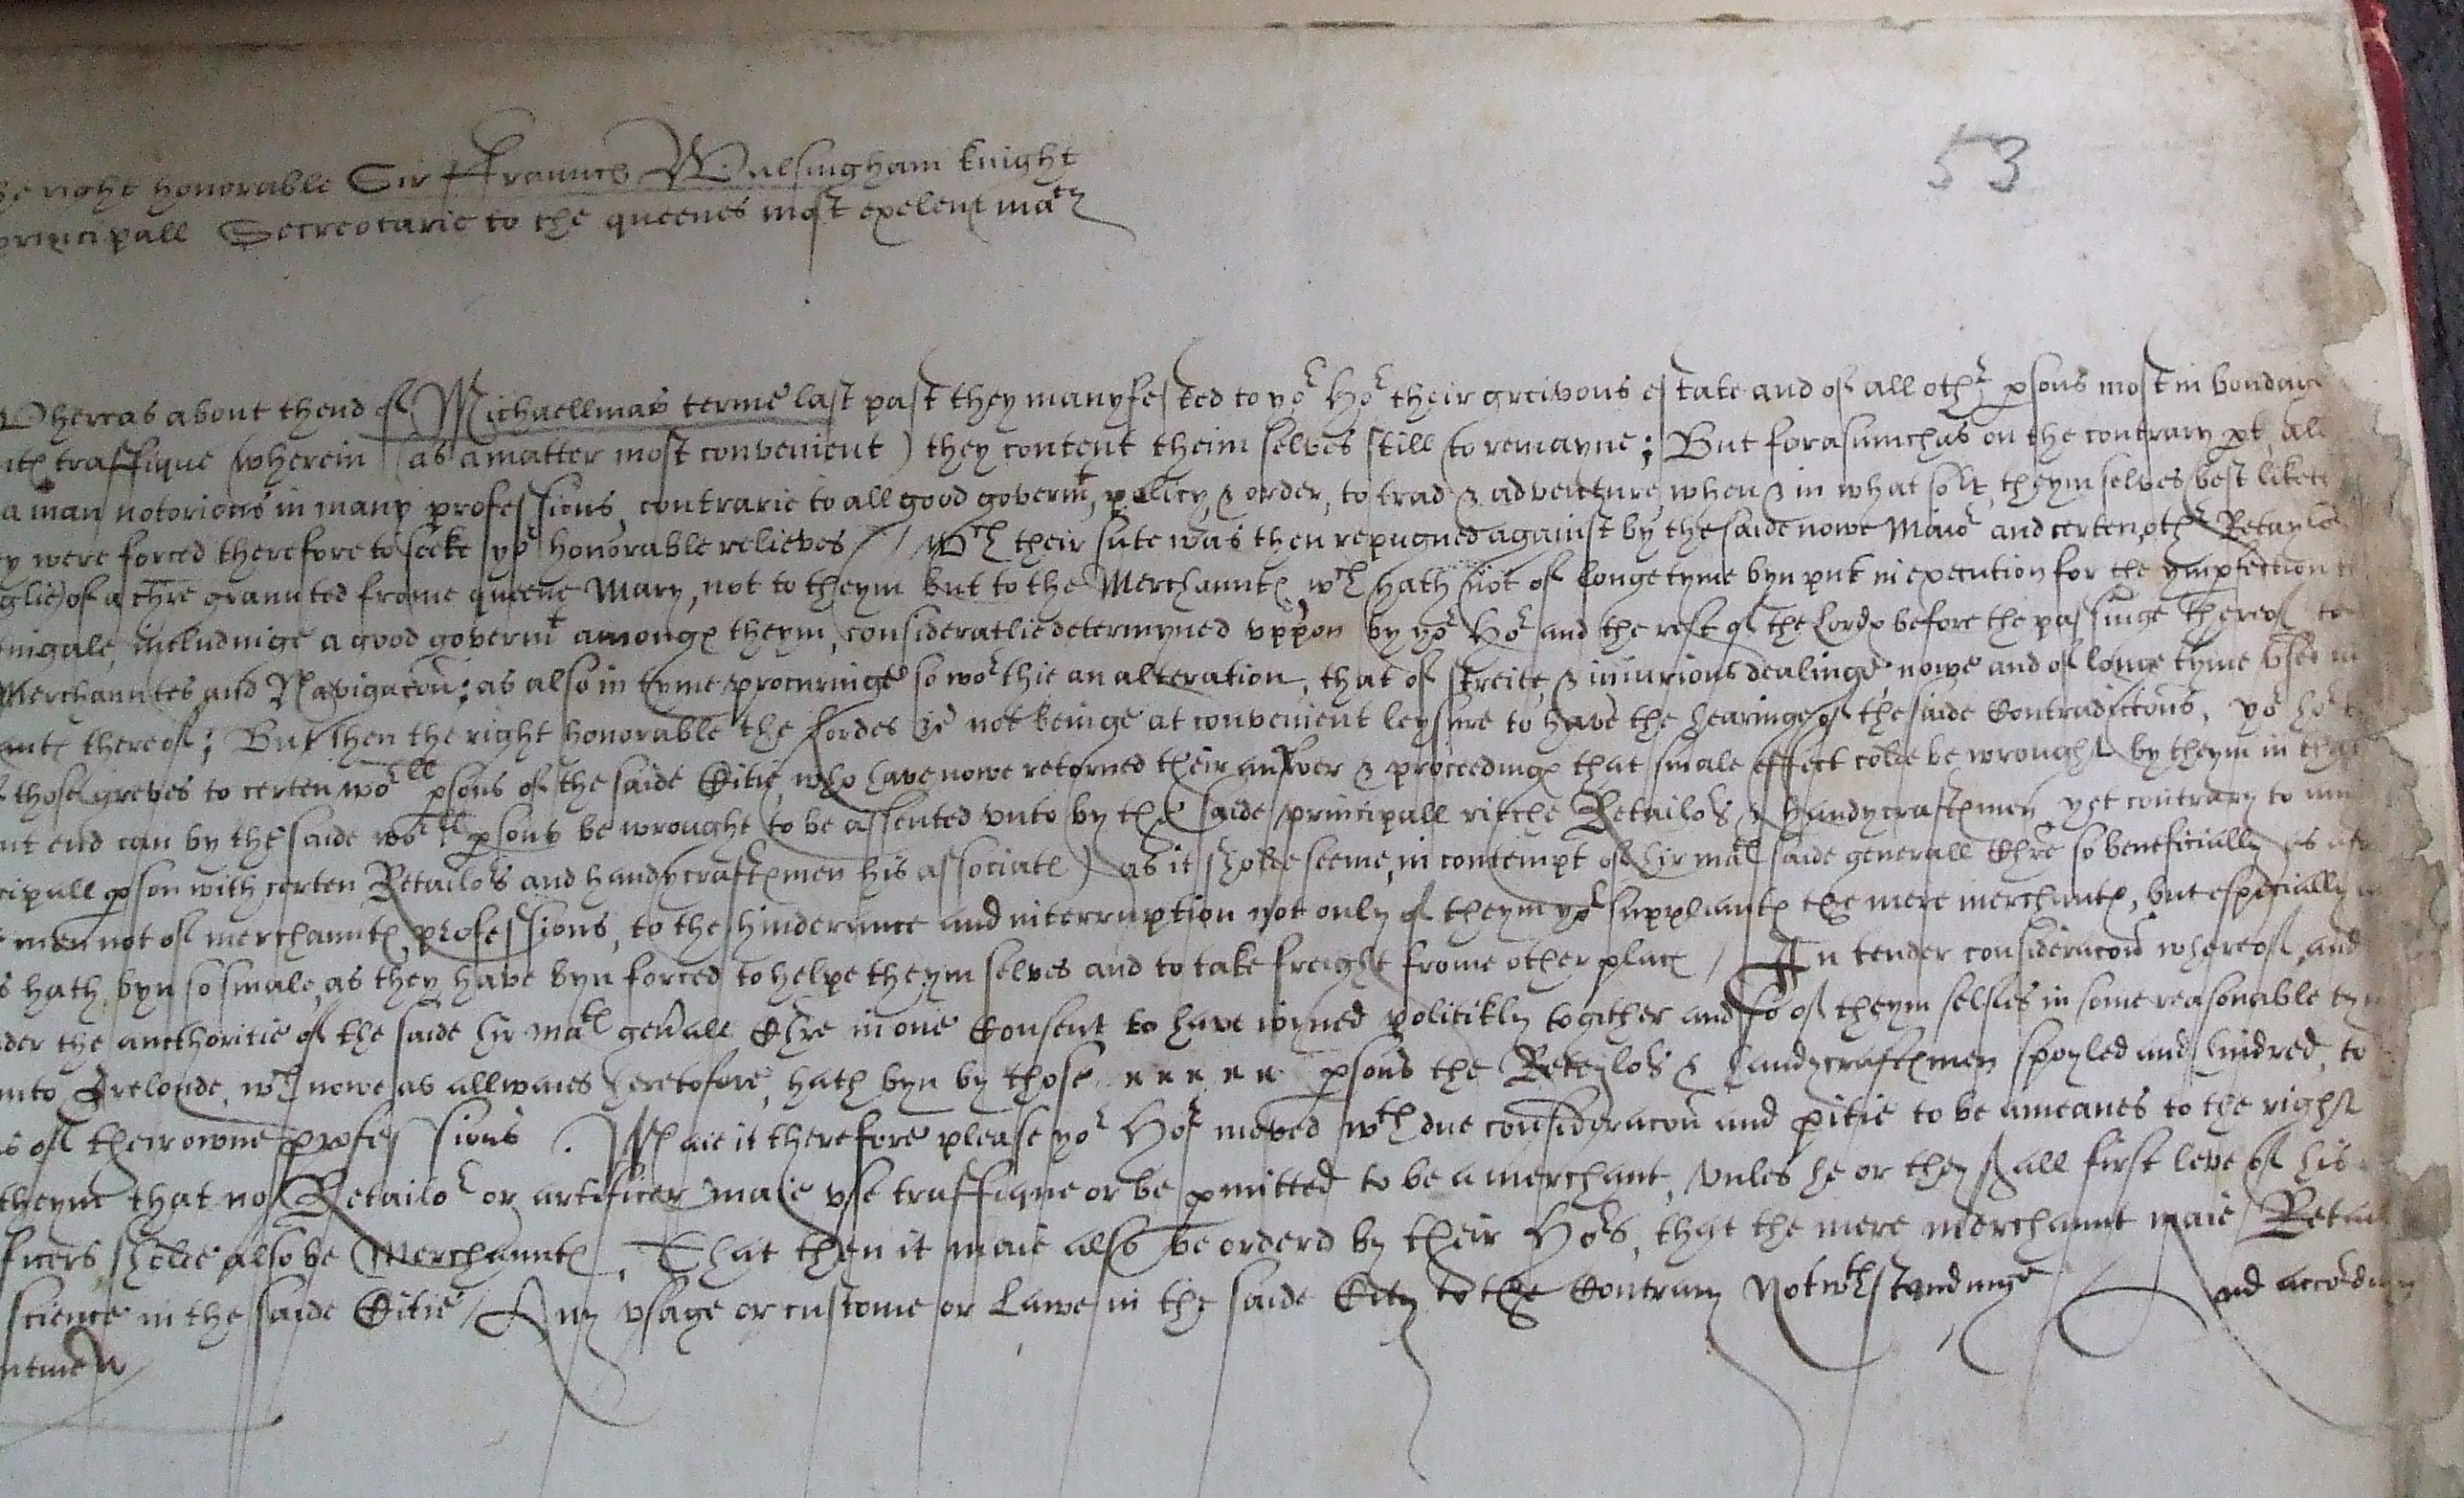 53
right honorable Sir Frauncs Walsingham knight
principall Secreotarie to the queenes most exelent matz
Whereas about thend of Michaellmas terme last past they manyfested to yor Hor their greivous estate and of all othr psons most in bondage
traffique (wherein (as a matter most convenient) they content theim selves still to remayne; But forasmuchas on the contrary pt, all
a man notorious in many professions, contrarie to all good govermt, policy, & order, to trad & adventure, when & in what sort, theym selves best liketh
were forced therefore to seeke yor honorable relieves // Wch their sute was then repugned against by the saide nowe Maior and certen othr
of a chre graunted frome queene Mary, not to theym but to the Merchauntes, wch hath not of longe tyme byn put in execution for the ympfection
includinge a good govermt amonges theym, consideratlie determyned uppon by yor Hor and the rest of the Lordes before the passinge thereof to
Merchauntes and Navigacon; as also in tyme procuringe so worthie an alteration, that of streite, & iniurious dealinge, nowe and of longe tyme used in
thereof; But then the right honorable the Lordes &c not beinge at convenient leysure to have the hearinge of the saide Contradictions, yor hor
those greves to certen worll psons of the saide Citie, who have nowe retorned their answer & proceedinges that smale effect colde be wrought by theym in that
end can by the saide worll psons be wrought to be assented unto by the saide principall ritche Retailors & handycraftesmen, yet contrary to
pson with certen Retailors and handycraftesmen his associates) as it sholde seeme, in contempt of hir mats saide generall Chre so beneficially
men not of merchauntes professions, to the hinderance and interruption not only of theym yor suppliantes the mere merchantes, but especially
hath byn so smale, as they have byn forced to helpe theym selves and to take freight frome other places / In tender consideracon whereof, and
the aucthoritie of the saide hir mats genrall Chre in one Consent to have ioyned politikly together and so of theym selves in some reasonable
Irelonde, wch nowe as allwaies heretofore, hath byn by those psons the Reteylors & handycraftesmen spoyled and hindred, to
of their owne professions. Maie it therefore please yor Hor moved wth due consideracon and pitie to be a meanes to the right
theyme that no Retailor or artificer maie use traffique or be pmitted to be a merchant, unles he or they shall first leve of his
sholde also be Merchauntes, That then it maie also be orderd by their Hors, that the mere merchaunt maie
science in the saide Citie / Any usage or custome or Lawe in the saide City to the Contrary Notwthstandinge / And